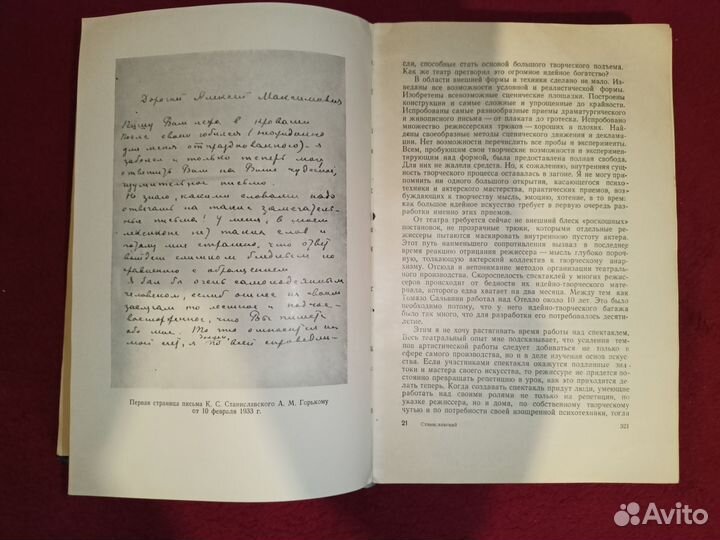 Дорогой Алексей Максимович
Пишу Вам лежа в кровати
После своего юбилея (неожиданно
для меня отпразднованного) - я
заболел и только теперь могу
ответить Вам на Ваше чудесное,
изумительное письмо.
Не знаю, какими словами надо
отвечать на такие замечатель-
ные письма! У меня, в моем
лексиконе нет таких слов и
потому мне страшно, что ответ
выйдет слишком бледным по
сравнению с обращением
Я был бы очень самонадеянным
человеком, если б отнес на свои
заслуги то лестное и
восторженное, что Вы пишете
обо мне. То что относится ко
мой я по всей справедли-
Первая страница письма К. С. Станиславского А. М. Горькому
от 10 февраля 1933 г.
сли, способные стать основой большого творческого подъема.
Как же театр претворил это огромное идейное богатство?
В области внешней формы и техники сделано не мало. Изве-
даны все возможности условной и реалистической формы.
Изобретены всевозможные сценические площадки. Построены
конструкции и самые сложные и упрощенные до крайности.
Испробованы самые разнообразные приемы драматургического
и живописного письма — от плаката до гротеска. Испробовано
множество режиссерских трюков — хороших и плохих. Най-
дены своеобразные методы сценического движения и деклама-
ции. Нет возможности перечислить все пробы и эксперименты.
Всем, пробующим свои творческие возможности и эксперименти-
рующим над формой, была предоставлена полная свобода.
Для них не жалели средств. Но, к сожалению, внутренняя сущ-
ность творческого процесса оставалась в загоне. Я не могу при-
помнить ни одного большого открытия, касающегося психо-
техники и актерского мастерства, практических приемов, воз-
буждающих к творчеству мысль, эмоцию, хотение, в то время
как большое идейное искусство требует в первую очередь раз-
работки именно этих приемов.
От театра требуется сейчас не внешний блеск «роскошных»
постановок, не прозрачные трюки, которыми отдельные ре-
жиссеры пытаются маскировать внутреннюю пустоту актера.
Этот путь наименьшего сопротивления вызвал в последнее
время реакцию отрицания режиссера — мысль глубоко пороч-
ную, толкающую актерский коллектив к творческому анар-
хизму. Отсюда и непонимание методов организации театраль-
ного производства. Скороспелость спектаклей у многих режис-
серов происходит от бедности их идейно-творческого мате-
риала, которого едва хватает на два месяца. Между тем как
Томазо Сальвини работал над Отелло около 10 лет. Это было
необходимо потому, что у него идейно-творческого багажа
было так много, что для разработки его потребовалось десяти-
летие.
Этим я не хочу растягивать время работы над спектаклем.
Весь театральный опыт мне подсказывает, что усиления тем-
пов артистической работы следует добиваться не только в
сфере самого производства, но и в деле изучения основ искус-
ства. Если участниками спектакля окажутся подлинные зна-
токи и мастера своего искусства, то режиссеру не придется по-
стоянно превращать репетицию в урок, как это приходится делать
теперь. Когда создавать спектакль придут люди, умеющие
работать над своими ролями не только на репетиции, по
указке режиссера, но и дома, по собственному творческому
чутью и по потребности своей изощренной психотехники, тогда
21 Станиславский 321
Avito